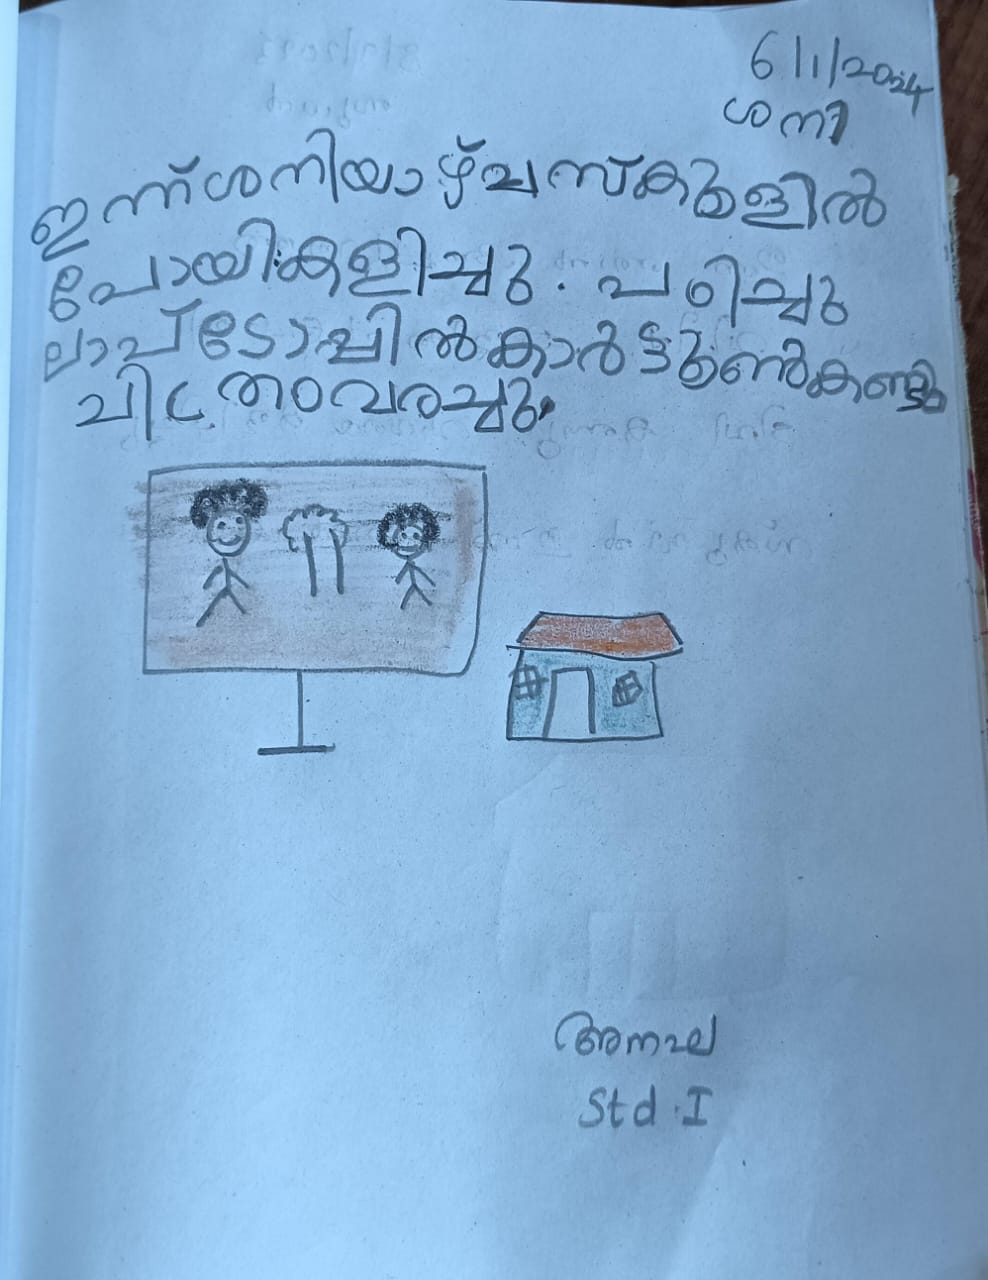 6/1/2024
ശനി
ഇന്ന് ശനിയാഴ്ച സ്കൂളിൽ
പോയി കളിച്ചു. പഠിച്ചു
ലാപ്ടോപ്പിൽ കാർട്ടൂൺ കണ്ടു
ചിത്രം വരച്ചു.
Std.I